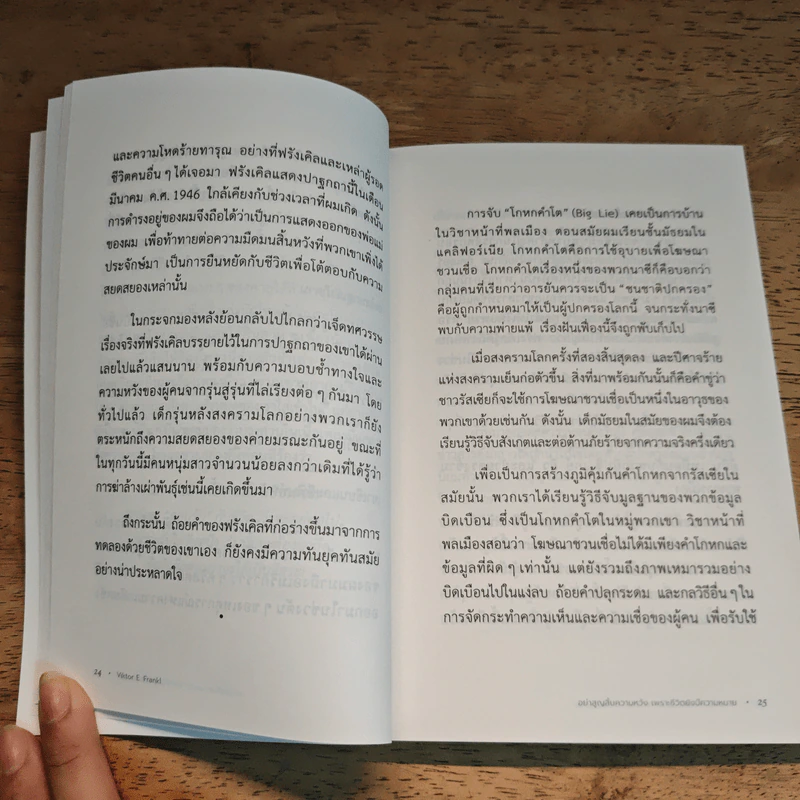 และความโหดร้ายทารุณ อย่างที่ฟรังเคิลและเหล่าผู้รอด
ชีวิตคนอื่น ๆ ได้เจอมา ฟรังเคิลแสดงปาฐกถานี้ในเดือน
มีนาคม ค.ศ. 1946 ใกล้เคียงกับช่วงเวลาที่ผมเกิด ดังนั้น
การดำรงอยู่ของผมจึงถือได้ว่าเป็นการแสดงออกของพ่อแม่
ของผม เพื่อท้าทายต่อความมืดมนสิ้นหวังที่พวกเขาเพิ่งได้
ประจักษ์มา เป็นการยืนหยัดกับชีวิตเพื่อโต้ตอบกับความ
สยดสยองเหล่านั้น
ในกระจกมองหลังย้อนกลับไปไกลกว่าเจ็ดทศวรรษ
เรื่องจริงที่ฟรังเคิลบรรยายไว้ในการปาฐกถาของเขาได้ผ่าน
เลยไปแล้วแสนนาน พร้อมกับความบอบช้ำทางใจและ
ความหวังของผู้คนจากรุ่นสู่รุ่นที่ไล่เรียงต่อ ๆ กันมา โดย
ทั่วไปแล้ว เด็กรุ่นหลังสงครามโลกอย่างพวกเราก็ยัง
ตระหนักถึงความสยดสยองของค่ายมรณะกันอยู่ ขณะที่
ในทุกวันนี้มีคนหนุ่มสาวจำนวนน้อยลงกว่าเดิมที่ได้รู้ว่า
การฆ่าล้างเผ่าพันธุ์เช่นนี้เคยเกิดขึ้นมา
ถึงกระนั้น ถ้อยคำของฟรังเคิลที่ก่อร่างขึ้นมาจากการ
ทดลองด้วยชีวิตของเขาเอง ก็ยังคงมีความทันยุคทันสมัย
อย่างน่าประหลาดใจ
24 • Viktor E. Frankl
การจับ “โกหกคำโต” (Big Lie) เคยเป็นการบ้าน
ในวิชาหน้าที่พลเมือง ตอนสมัยผมเรียนชั้นมัธยมใน
แคลิฟอร์เนีย โกหกคำโตคือการใช้อุบายเพื่อโฆษณา
ชวนเชื่อ โกหกคำโตเรื่องหนึ่งของพวกนาซีก็คือบอกว่า
กลุ่มคนที่เรียกว่าอารยันควรจะเป็น “ชนชาติปกครอง”
คือผู้ถูกกำหนดมาให้เป็นผู้ปกครองโลกนี้ จนกระทั่งนาซี
พบกับความพ่ายแพ้ เรื่องฝันเฟื่องนี้จึงถูกพับเก็บไป
เมื่อสงครามโลกครั้งที่สองสิ้นสุดลง และปีศาจร้าย
แห่งสงครามเย็นก่อตัวขึ้น สิ่งที่มาพร้อมกันนั้นก็คือคำขู่ว่า
ชาวรัสเซียก็จะใช้การโฆษณาชวนเชื่อเป็นหนึ่งในอาวุธของ
พวกเขาด้วยเช่นกัน ดังนั้น เด็กมัธยมในสมัยของผมจึงต้อง
เรียนรู้วิธีจับสังเกตและต่อต้านภัยร้ายจากความจริงครึ่งเดียว
เพื่อเป็นการสร้างภูมิคุ้มกันคำโกหกจากรัสเซียใน
สมัยนั้น พวกเราได้เรียนรู้วิธีจับมูลฐานของพวกข้อมูล
บิดเบือน ซึ่งเป็นโกหกคำโตในหมู่พวกเขา วิชาหน้าที่
พลเมืองสอนว่า โฆษณาชวนเชื่อไม่ได้มีเพียงคำโกหกและ
ข้อมูลที่ผิด ๆ เท่านั้น แต่ยังรวมถึงภาพเหมารวมอย่าง
บิดเบือนไปในแง่ลบ ถ้อยคำปลุกระดม และกลวิธีอื่น ๆ ใน
การจัดกระทำความเห็นและความเชื่อของผู้คน เพื่อรับใช้
อย่าสูญสิ้นความหวัง เพราะชีวิตยังมีความหมาย • 25